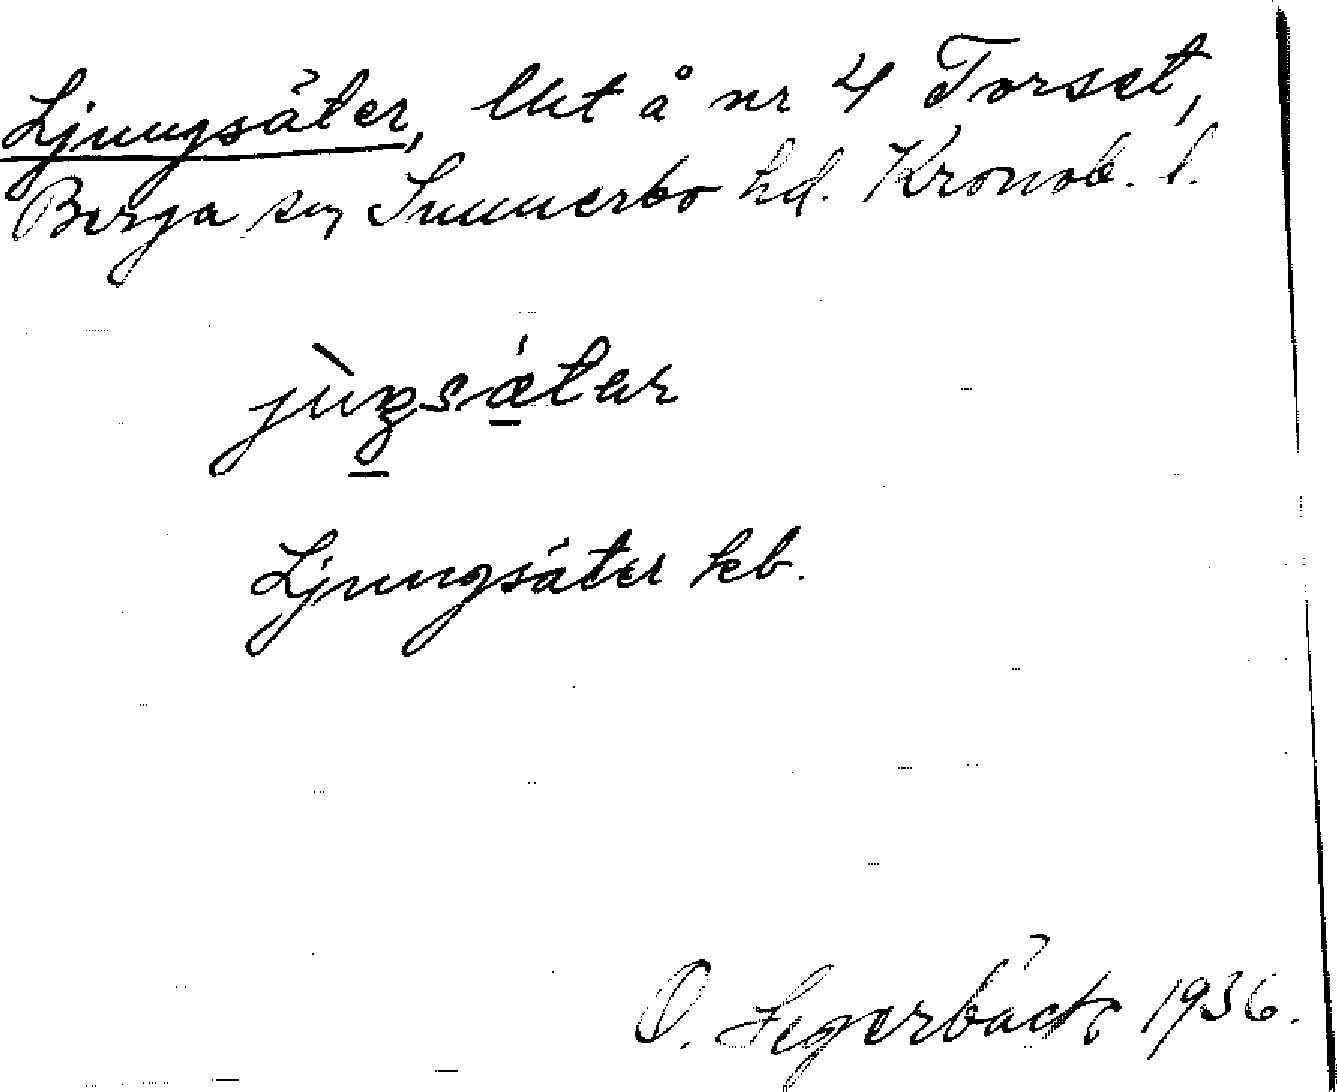 Ljungsäter, lht å nr 4 Torset,
Berga sn, Sunnerbo hd. Kronob. l.
jùŋsätər
Ljungsäter kb.
O. Segerbäck 1936.